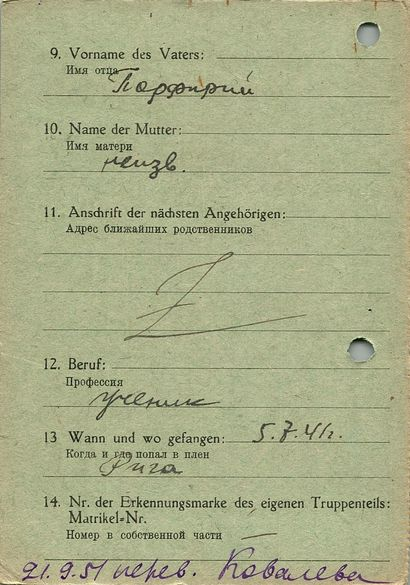 9. Vorname des Vaters:
Имя отца
Порфирий
10. Name der Mutter:
Имя матери
неизв.
11. Anschrift der nächsten Angehörigen:
Адрес ближайших родственников
Z
12. Beruf:
Профессия
ученик
13 Wann und wo gefangen: 5.7.41г.
Когда и где попал в плен
Рига
14. Nr. der Erkennungsmarke des eigenen Truppenteils:
Matrikel=Nr.
Номер в собственной части —
21.9.51 перев. Ковалева